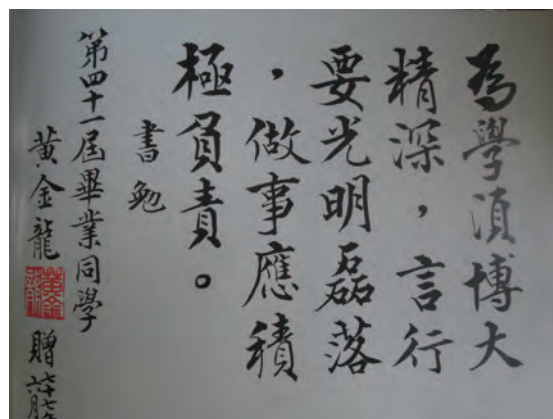 為學須博大
精深，言行
要光明磊落
，做事應積
極負責。
書勉
第四十一屆畢業同學
黃金龍
贈